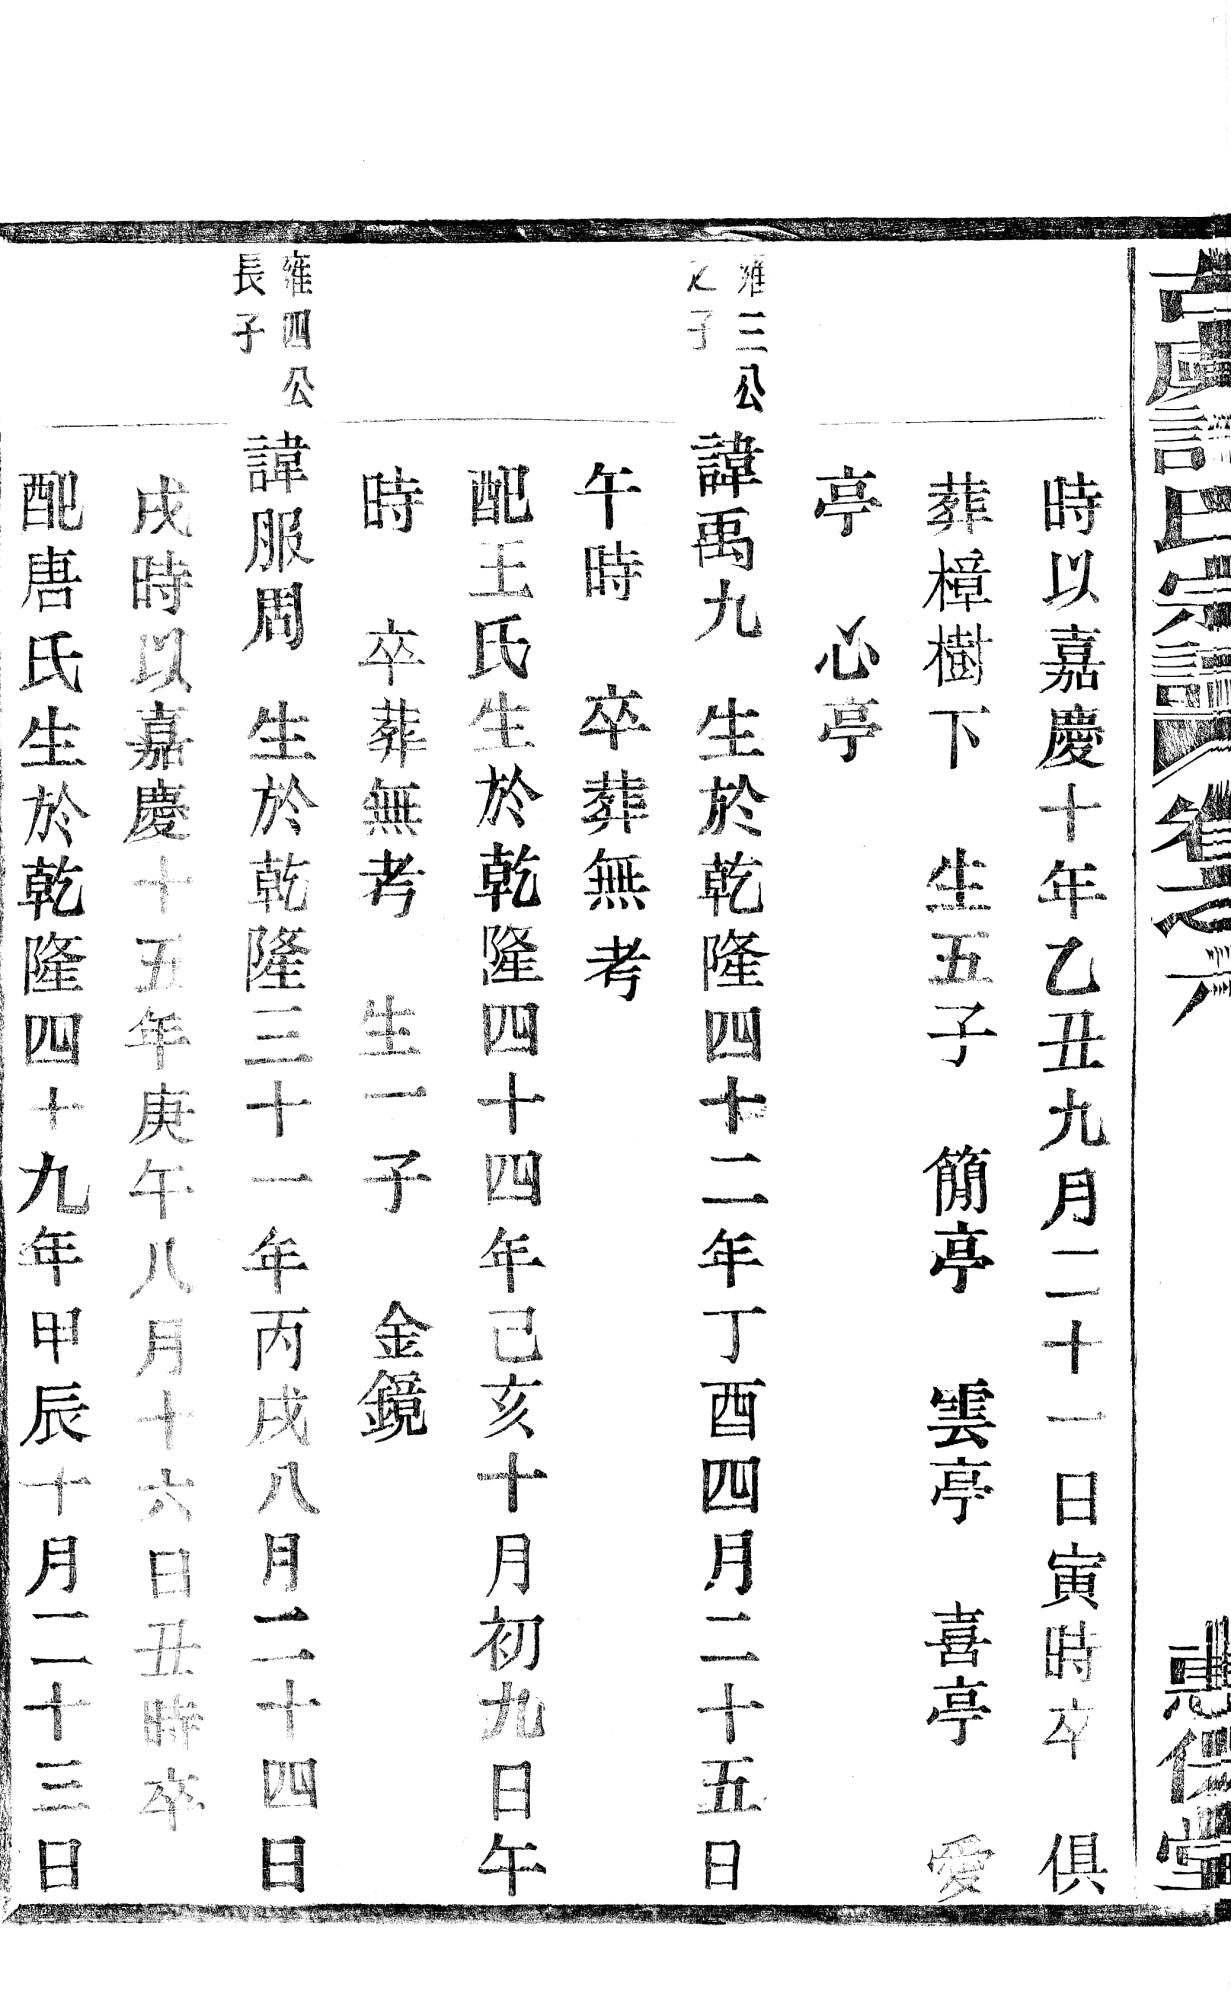 古虞譚氏宗譜 卷之六
時以嘉慶十年乙丑九月二十一日寅時卒 俱
葬樟樹下 生五子 簡亭 雲亭 喜亭 愛
亭 心亭
雍三公之子
諱禹九 生於乾隆四十二年丁酉四月二十五日
午時 卒葬無考
配王氏生於乾隆四十四年己亥十月初九日午
時 卒葬無考 生一子 金鏡
雍四公長子
諱服周 生於乾隆三十一年丙戌八月二十四日
戌時以嘉慶十五年庚午八月十六日丑時卒
配唐氏生於乾隆四十九年甲辰十月二十三日